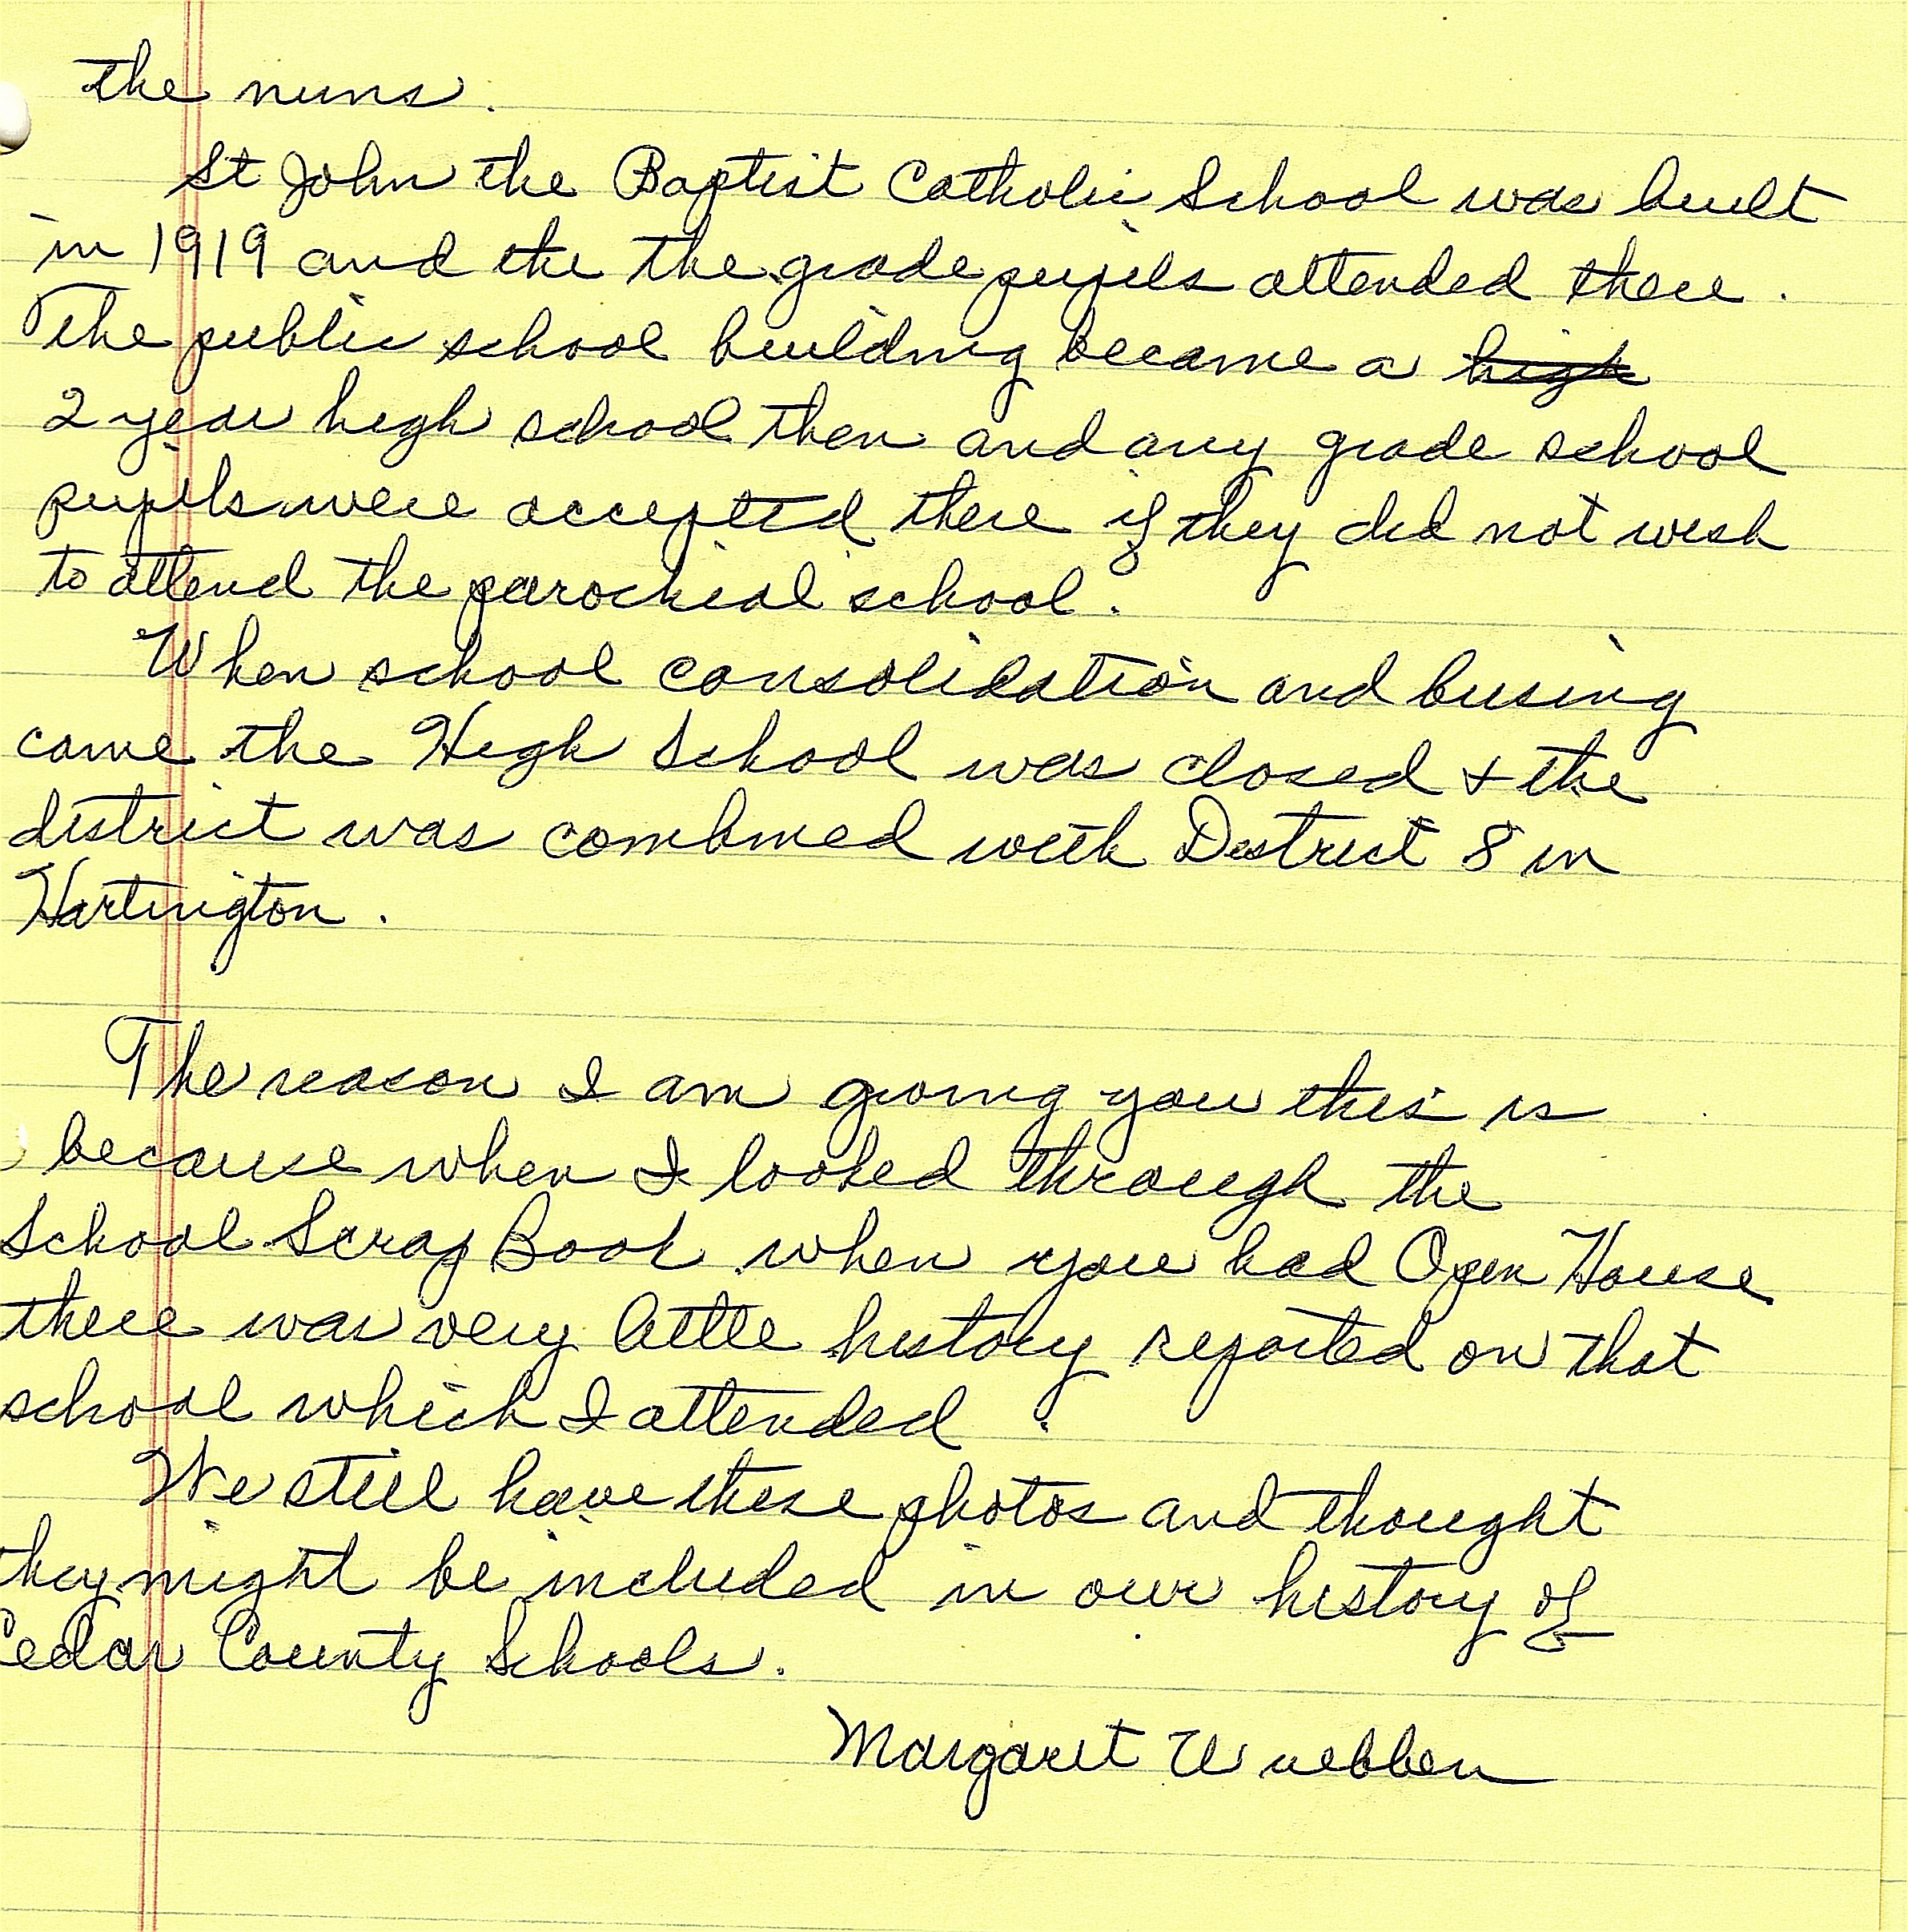 the nuns.
St John the Baptist Catholic School was built
in 1919 and the the grade pupils attended there.
The public school building became a ~~high~~
2 year high school then and any grade school
pupils were accepted there if they did not wish
to attend the parochial school.
When school consolidation and busing
came the High School was closed + the
district was combined with District 8 in
Hartington.
The reason I am giving you this is
because when I looked through the
School Scrap Book when you had Open House
there was very little history reported on that
school which I attended.
We still have these photos and thought
they might be included in our history of
Cedar County Schools.
Margaret Wuebben